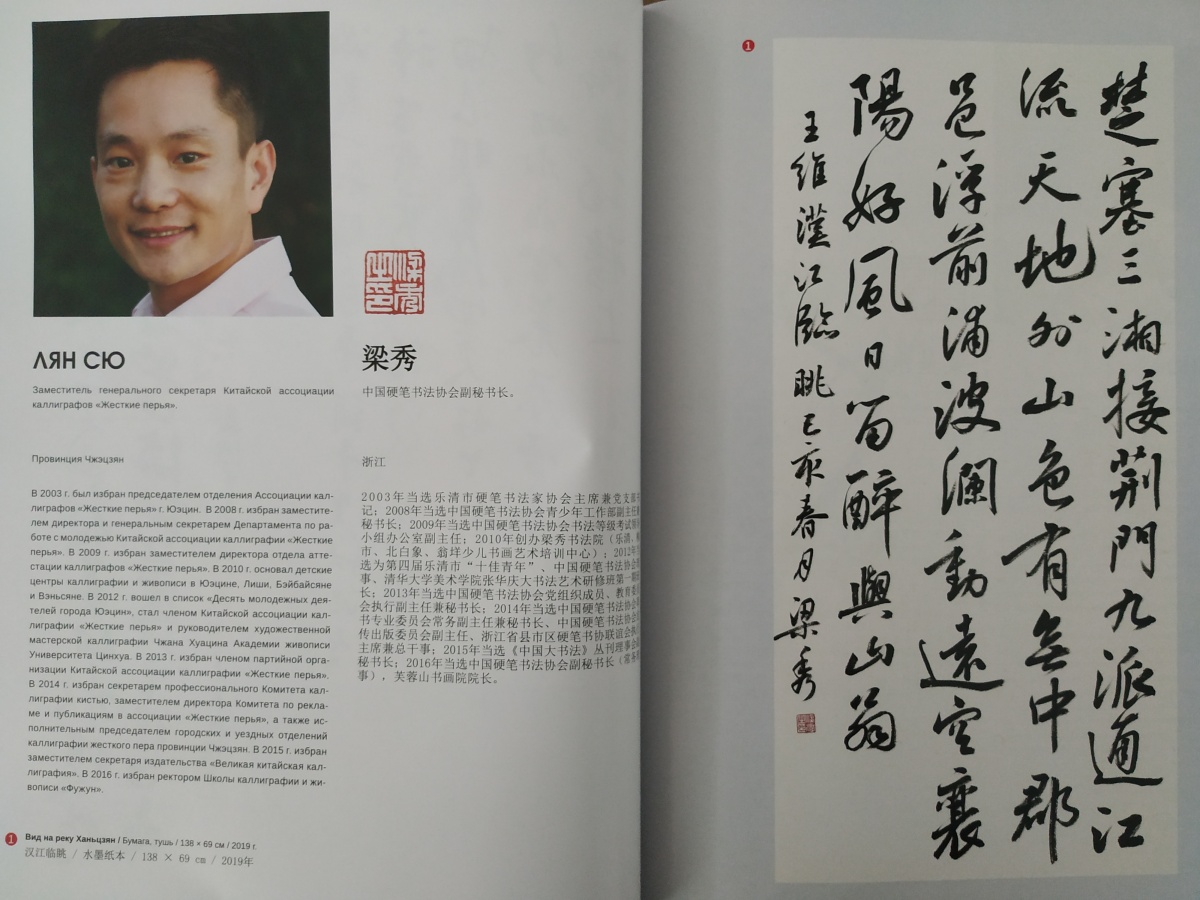 ЛЯН СЮ
Заместитель генерального секретаря Китайской ассоциации
каллиграфов «Жесткие перья».
Провинция Чжэцзян
В 2003 г. был избран председателем отделения Ассоциации кал-
лиграфов «Жесткие перья» г. Юэцин. В 2008 г. избран заместите-
лем директора и генеральным секретарем Департамента по ра-
боте с молодежью Китайской ассоциации каллиграфии «Жесткие
перья». В 2009 г. избран заместителем директора отдела атте-
стации каллиграфов «Жесткие перья». В 2010 г. основал детские
центры каллиграфии и живописи в Юэцине, Лиши, Бэйбайсяне
и Вэньсяне. В 2012 г. вошел в список «Десять молодежных дея-
телей города Юэцин», стал членом Китайской ассоциации кал-
лиграфии «Жесткие перья» и руководителем художественной
мастерской каллиграфии Чжана Хуацина Академии живописи
Университета Цинхуа. В 2013 г. избран членом партийной орга-
низации Китайской ассоциации каллиграфии «Жесткие перья».
В 2014 г. избран секретарем профессионального Комитета кал-
лиграфии кистью, заместителем директора Комитета по рекла-
ме и публикациям в ассоциации «Жесткие перья», а также ис-
полнительным председателем городских и уездных отделений
каллиграфии жесткого пера провинции Чжэцзян. В 2015 г. избран
заместителем секретаря издательства «Великая китайская кал-
лиграфия». В 2016 г. избран ректором Школы каллиграфии и жи-
вописи «Фужун».
梁秀之印
梁秀
中国硬笔书法协会副秘书长。
浙江
2003年当选乐清市硬笔书法家协会主席兼党支部书
记；2008年当选中国硬笔书法协会青少年工作部副主任兼
秘书长；2009年当选中国硬笔书法协会书法等级考试
小组办公室副主任；2010年创办梁秀书法院（乐清、
市、北白象、翁垟少儿书画艺术培训中心）；2012年
选为第四届乐清市“十佳青年”、中国硬笔书法协会
事、清华大学美术学院张华庆大书法艺术研修班第一期
长；2013年当选中国硬笔书法协会党组织成员、教育委
会执行副主任兼秘书长；2014年当选中国硬笔书法协会
书专业委员会常务副主任兼秘书长、中国硬笔书法协会
传出版委员会副主任、浙江省县市区硬笔书协联谊会执
主席兼总干事；2015年当选《中国大书法》丛刊理事会
秘书长；2016年当选中国硬笔书法协会副秘书长（常务
事），芙蓉山书画院院长。
1 Вид на реку Ханьцзян / Бумага, тушь / 138 × 69 см / 2019 г.
汉江临眺 / 水墨纸本 / 138 × 69 cm / 2019年
1
楚塞三湘接荊門九派通江
流天地外山色有無中郡
邑浮前浦波瀾動遠空襄
陽好風日留醉與山翁
王維漢江臨眺己亥春月梁秀